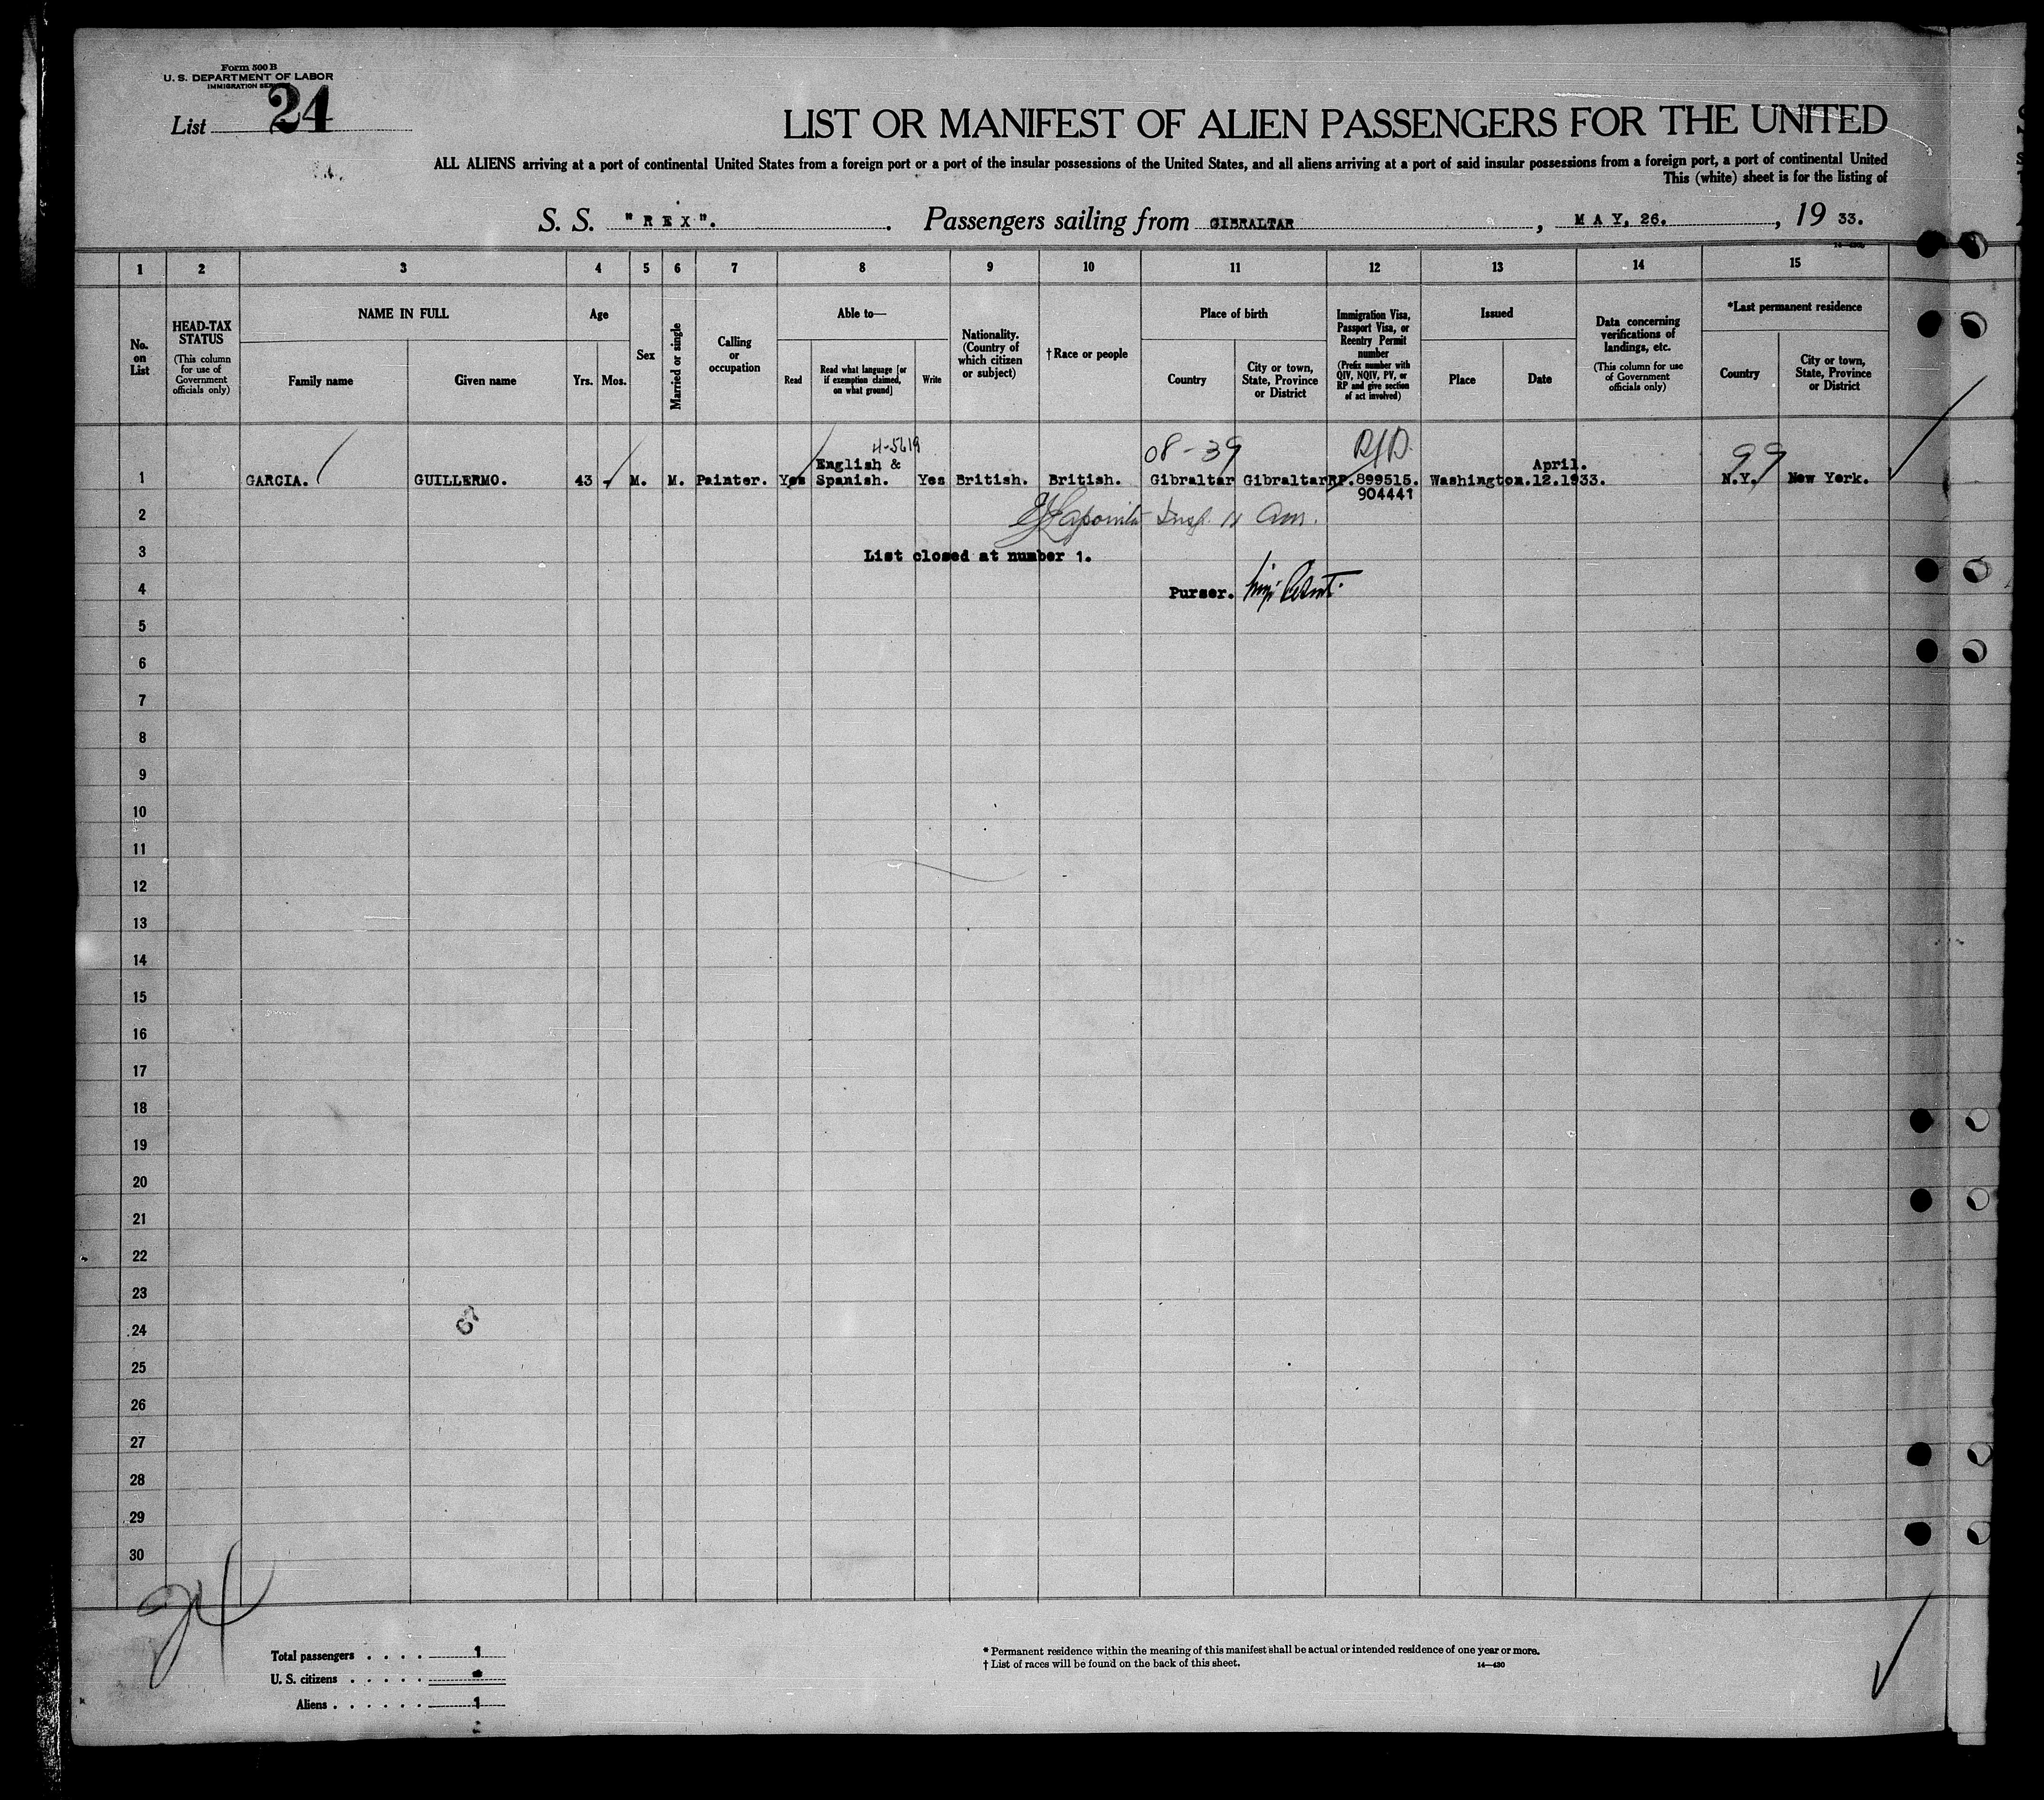 Form 500 B
U. S. DEPARTMENT OF LABOR
IMMIGRATION
List 24
LIST OR MANIFEST OF ALIEN PASSENGERS FOR THE UNITED
ALL ALIENS arriving at a port of continental United States from a foreign port or a port of the insular possessions of the United States, and all aliens arriving at a port of said insular possessions from a foreign port, a port of continental United
This (white) sheet is for the listing of
S. S. "REX". Passengers sailing from GIBRALTAR, MAY, 26., 19 33.
1 2 3 4 5 6 7 8 9 10 11 12 13 14 15
No. on List
HEAD-TAX STATUS
(This column for use of Government officials only)
NAME IN FULL
Family name
Given name
Age
Yrs. Mos.
Sex
Married or single
Calling or occupation
Able to—
Read
Read what language [or if exemption claimed, on what ground]
Write
Nationality. (Country of which citizen or subject)
† Race or people
Place of birth
Country
City or town, State, Province or District
Immigration Visa, Passport Visa, or Reentry Permit number
(Prefix number with QIV, NQIV, PV, or RP and give section of act involved)
Issued
Place
Date
Data concerning verifications of landings, etc.
(This column for use of Government officials only)
*Last permanent residence
Country
City or town, State, Province or District
4-5619
08-39
99
1 GARCIA. GUILLERMO. 43 M. M. Painter. Yes English & Spanish. Yes British. British. Gibraltar Gibraltar RP.899515. Washington. April. 12.1933. N.Y. New York.
904441
2
3 List closed at number 1.
4 Purser.
5
6
7
8
9
10
11
12
13
14
15
16
17
18
19
20
21
22
23
24
25
26
27
28
29
30
24
Total passengers . . . . 1
U. S. citizens . . . . . -
Aliens . . . . . . 1
* Permanent residence within the meaning of this manifest shall be actual or intended residence of one year or more.
† List of races will be found on the back of this sheet. 14—430